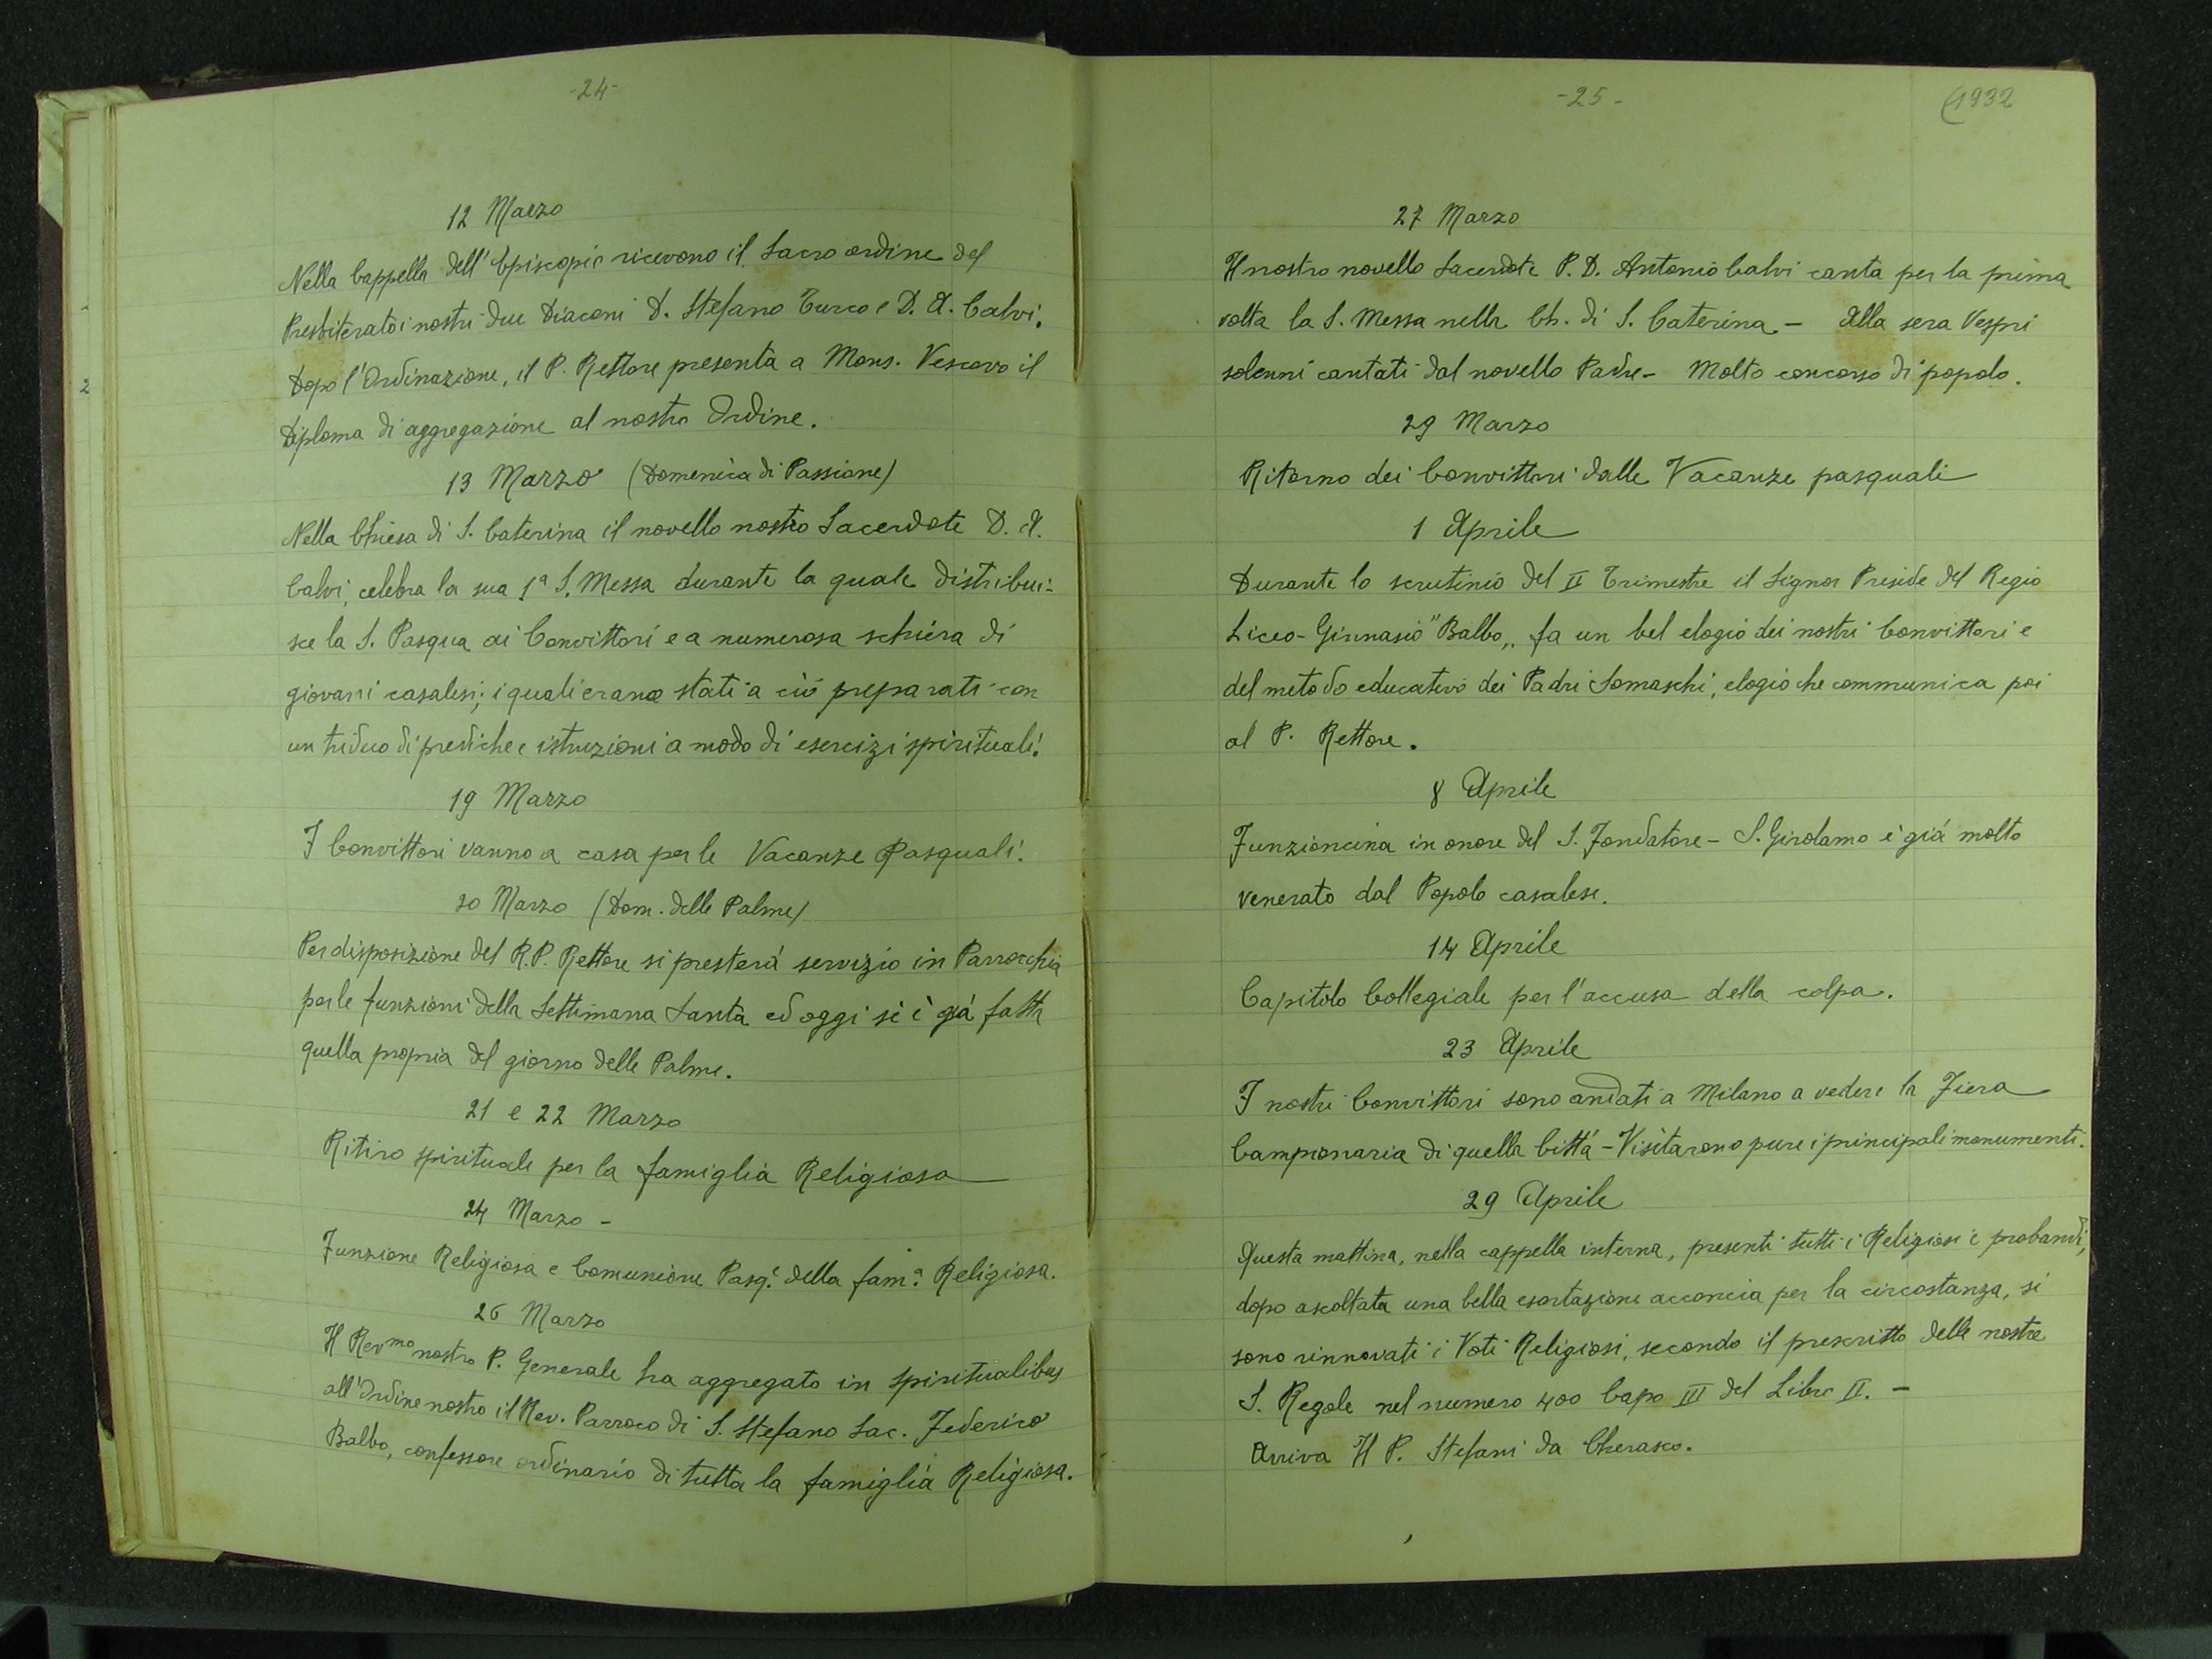 -24-
12 Marzo
Nella Cappella dell'Episcopio ricevono il Sacro ordine del
Presbiterato i nostri due Diaconi D. Stefano Turco e D. A. Calvi.
Dopo l'Ordinazione, il P. Rettore presenta a Mons. Vescovo il
Diploma di aggregazione al nostro Ordine.
13 Marzo (Domenica di Passione)
Nella Chiesa di S. Caterina il novello nostro Sacerdote D. A.
Calvi, celebra la sua 1ª S. Messa durante la quale distribui-
sce la S. Pasqua ai Convittori e a numerosa schiera di
giovani casalesi; i quali erano stati a ciò preparati con
un triduo di prediche e istruzioni a modo di esercizi spirituali.
19 Marzo
I Convittori vanno a casa per le Vacanze Pasquali.
20 Marzo (Dom. delle Palme)
Per disposizione del R.P. Rettore si presterá servizio in Parrocchia
per le funzioni della Settimana Santa ed oggi si è giá fatta
quella propria del giorno delle Palme.
21 e 22 Marzo
Ritiro spirituale per la famiglia Religiosa
24 Marzo -
Funzione Religiosa e Comunione Pasq.e della fam.a Religiosa.
26 Marzo
Il Rev.mo nostro P. Generale ha aggregato in spiritualibus
all'Ordine nostro il Rev. Parroco di S. Stefano Sac. Federico
Balbo, confessore ordinario di tutta la famiglia Religiosa.
1
2
-25-
(1932
27 Marzo
Il nostro novello Sacerdote P. D. Antonio Calvi canta per la prima
volta la S. Messa nella Ch. di S. Caterina - Alla sera Vespri
solenni cantati dal novello Padre - Molto concorso di popolo.
29 Marzo
Ritorno dei Convittori dalle Vacanze pasquali
1 Aprile
Durante lo scrutinio del II Trimestre il Signor Preside del Regio
Liceo-Ginnasio "Balbo,, fa un bel elogio dei nostri Convittori e
del metodo educativo dei Padri Somaschi, elogio che communica poi
al P. Rettore.
8 Aprile
Funzioncina in onore del S. Fondatore - S. Girolamo è giá molto
venerato dal Popolo casalese.
14 Aprile
Capitolo Collegiale per l'accusa della colpa.
23 Aprile
I nostri Convittori sono andati a Milano a vedere la Fiera
Campionaria di quella Cittá - Visitarono pure i principali monumenti.
29 Aprile
Questa mattina, nella cappella interna, presenti tutti i Religiosi e probandi,
dopo ascoltata una bella esortazione acconcia per la circostanza, si
sono rinnovati i Voti Religiosi, secondo il prescritto delle nostre
S. Regole nel numero 400 Capo III del Libro II. -
Arriva Il P. Stefani da Cherasco.